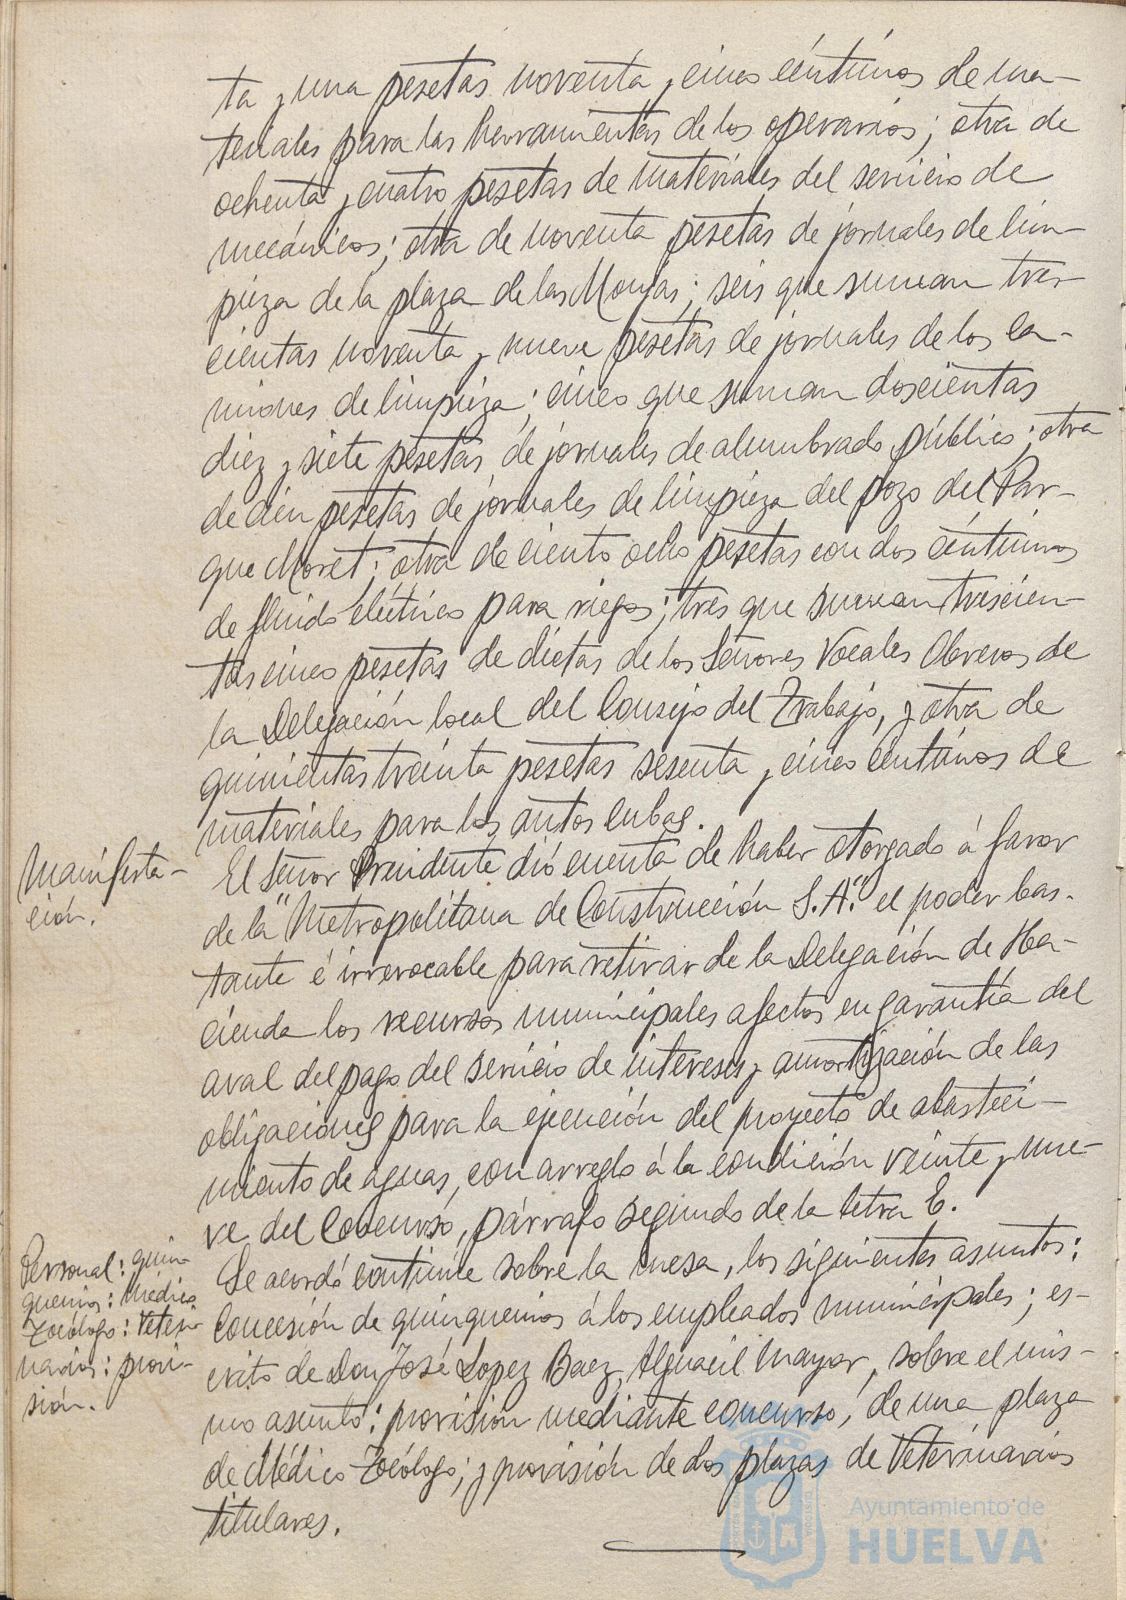 ta y una pesetas noventa y cinco céntimos de ma-
teriales para las herramientas de los operarios; otra de
ochenta y cuatro pesetas de materiales del servicio de
mecánicos; otra de noventa pesetas de jornales de lim-
pieza de la plaza de las Monjas; seis que suman tres-
cientas noventa y nueve pesetas de jornales de los ca-
miones de limpieza; cinco que suman doscientas
diez y siete pesetas de jornales de alumbrado público; otra
de cien pesetas de jornales de limpieza del pozo del Par-
que Moret; otra de ciento ocho pesetas con dos céntimos
de fluido eléctrico para riegos; tres que suman trescien-
tas cinco pesetas de dietas de los Señores Vocales Obreros de
la Delegación local del Consejo del Trabajo, y otra de
quinientas treinta pesetas sesenta y cinco centimos de
materiales para los autos cubas.
Manifesta-
ción.
El Señor Presidente dió cuenta de haber otorgado á favor
de la "Metropolitana de Construcción S.A." el poder bas-
tante é irrevocable para retirar de la Delegación de Ha-
cienda los recursos municipales afectos en garantía del
aval del pago del servicio de intereses y amortización de las
obligaciones para la ejecución del proyecto de abasteci-
miento de aguas, con arreglo á la condición veinte y nue-
ve del Concurso, párrafo segundo de la letra E.
Personal: quin-
quenios: Médico
Zoólogo: Veteri-
narios: provi-
sión.
Se acordó continúe sobre la mesa, los siguientes asuntos:
Concesión de quinquenios á los empleados municipales; es-
crito de Don José Lopez Baez, Alguacil Mayor, sobre el mis-
mo asunto; provisión mediante concurso, de una plaza
de Médico Zoólogo; y provisión de dos plazas de Veterinarios
titulares.
Ayuntamiento de
HUELVA